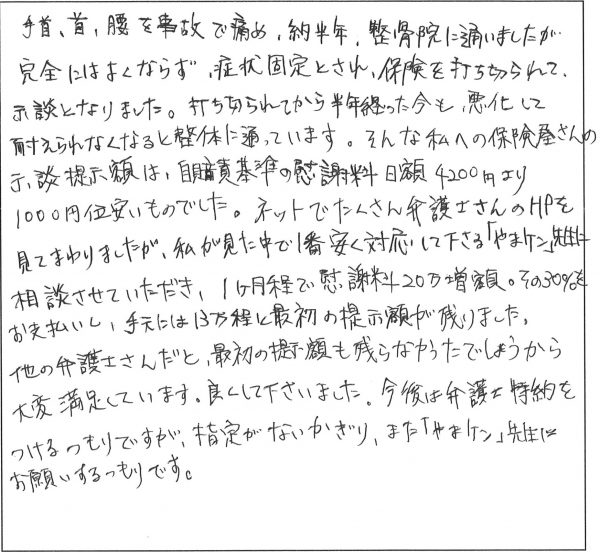 手首、首、腰を事故で痛め、約半年、整骨院に通いましたが
完全にはよくならず、症状固定とされ、保険を打ち切られて、
示談となりました。打ち切られてから半年経った今も、悪化して
耐えられなくなると整体に通っています。そんな私への保険屋さんの
示談提示額は、自賠責基準の慰謝料日額4200円より
1000円位安いものでした。ネットでたくさん弁護士さんのHPを
見てまわりましたが、私が見た中で1番安く対応して下さる「やまケン」先生に
相談させていただき、1ヶ月程で慰謝料20万増額。その30%を
お支払いし、手元には13万程と最初の提示額が残りました。
他の弁護士さんだと、最初の提示額も残らなかったでしょうから
大変満足しています。良くして下さいました。今後は弁護士特約を
つけるつもりですが、指定がないかぎり、また「やまケン」先生に
お願いするつもりです。